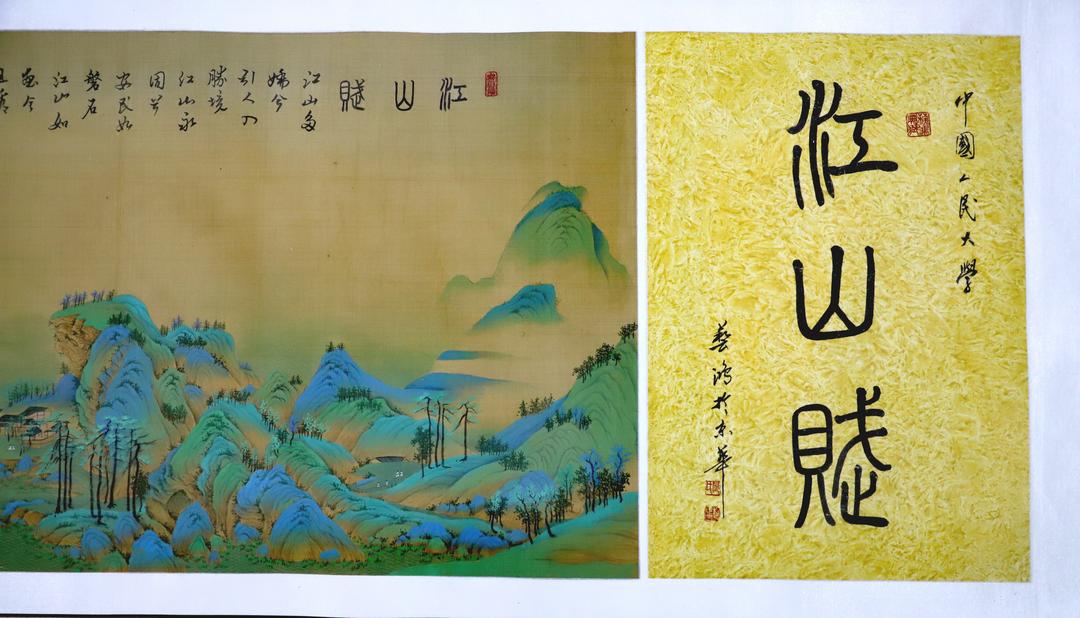 中國人民大學
江山賦
藝鴻於京華
江山賦
江山多
嬌兮
引人入
勝境
江山永
固兮
安民如
磐石
江山如
畫兮